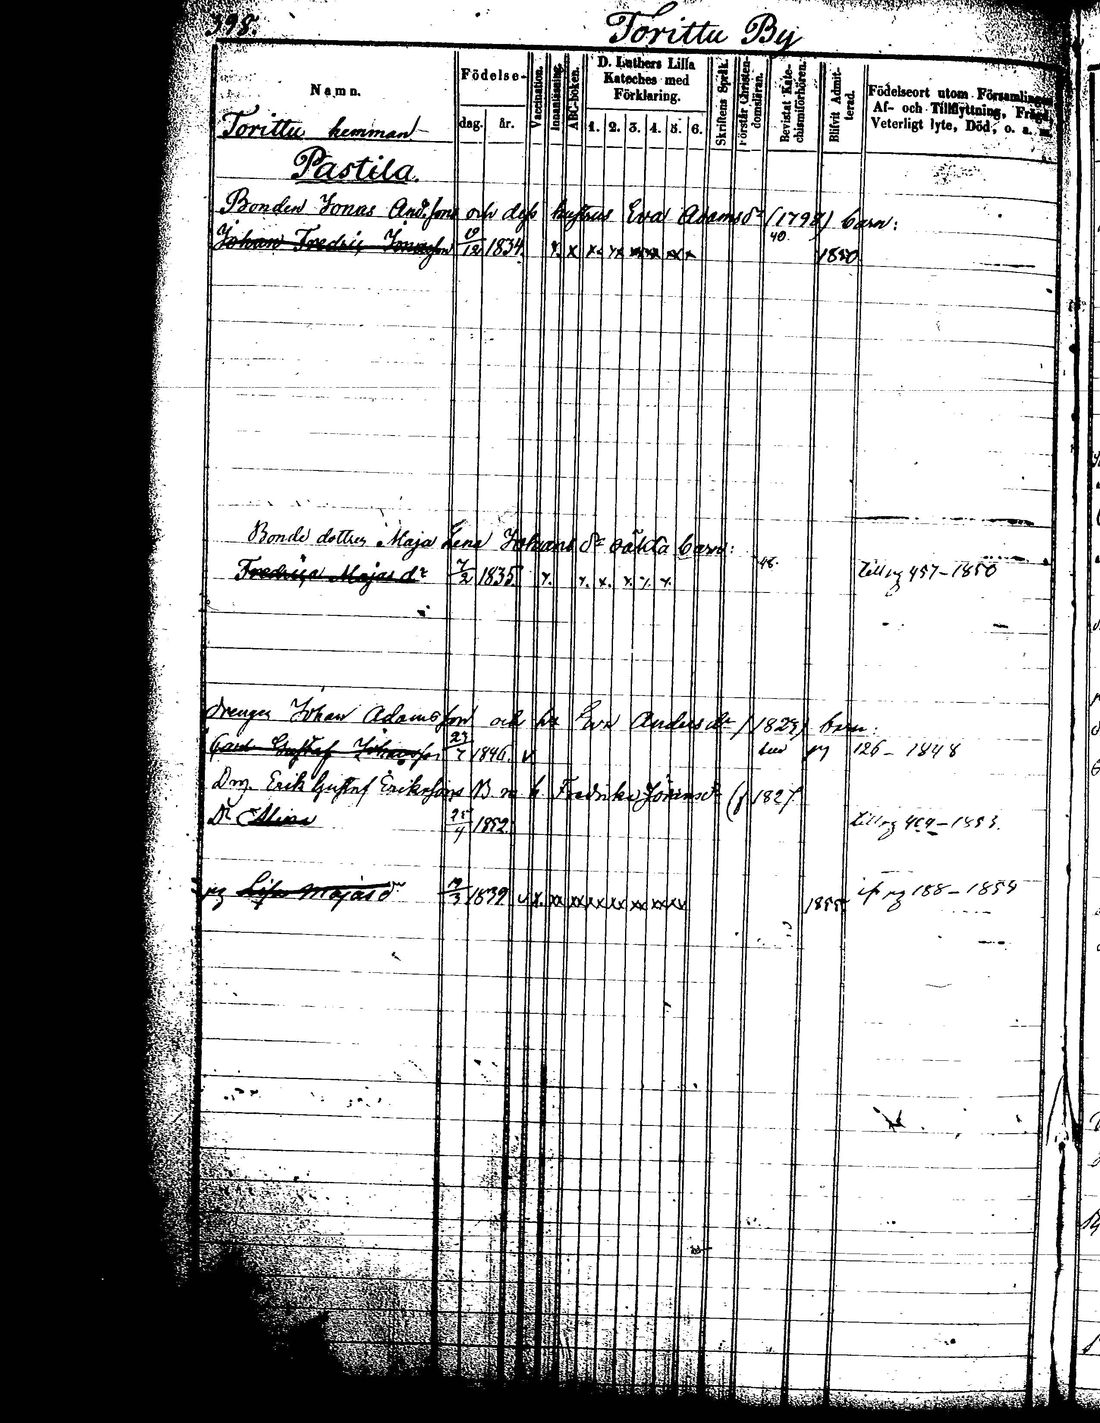 398.
Torittu By
Namn.
Födelse-
dag. år.
Vaccination.
Innanläsning.
ABC-boken.
D. Luthers Lilla
Kateches med
Förklaring.
1. 2. 3. 4. 5. 6.
Skriftens Språk.
Förstår Christen-
domsläran.
Bevistat Kate-
chismiförhören.
Blifvit Admit-
terad.
Födelseort utom Församlingen
Af- och Tillflyttning, Frägd,
Veterligt lyte, Död, o. a. m.
Torittu hemman
Pastila.
Bonden Jonas And.sons och dess hustrus Eva Adams dr (1798) barn:
Johan Fredric Jonasson 19/12 1834. x x x x x x x x x 40. 1850
Bonde dottren Maja Lena Johans dr oäkta barn:
Fredrica Majas dr 7/2 1835 x. x. x. x x x 48. till pg 457-1850
drengen Johan Adamsson och hu Eva Anders dr (1823) barn:
Carl Gustaf Johansson 1846. v pg 126-1848
Drg. Erik Gustaf Erikssons B m h Fredrika Jörans dr (f 1827
Dr Mina 25/4 1852 till pg 404-1853.
pg Lisa Majas dr 19/3 1839 v x. xx xx xx xx xx xx xx 1855. pg 188-1854